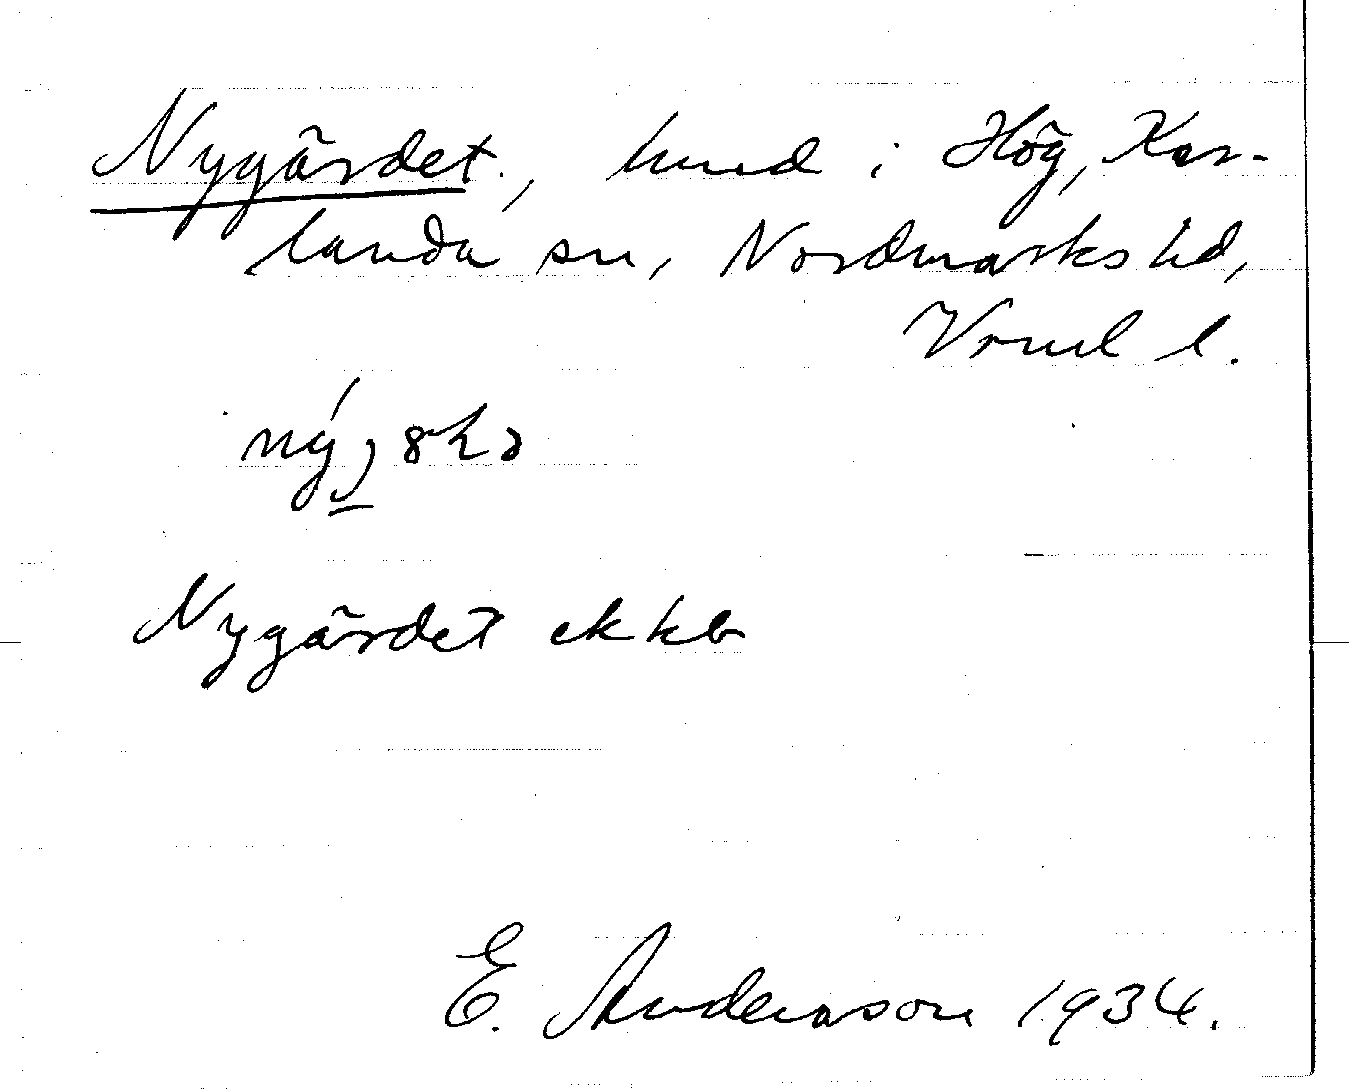 Nygärdet, hmd i Hög, Kar-
landa sn, Nordmarks hd,
Vrml l.
Nygärdet ekkb
E. Andersson 1934.